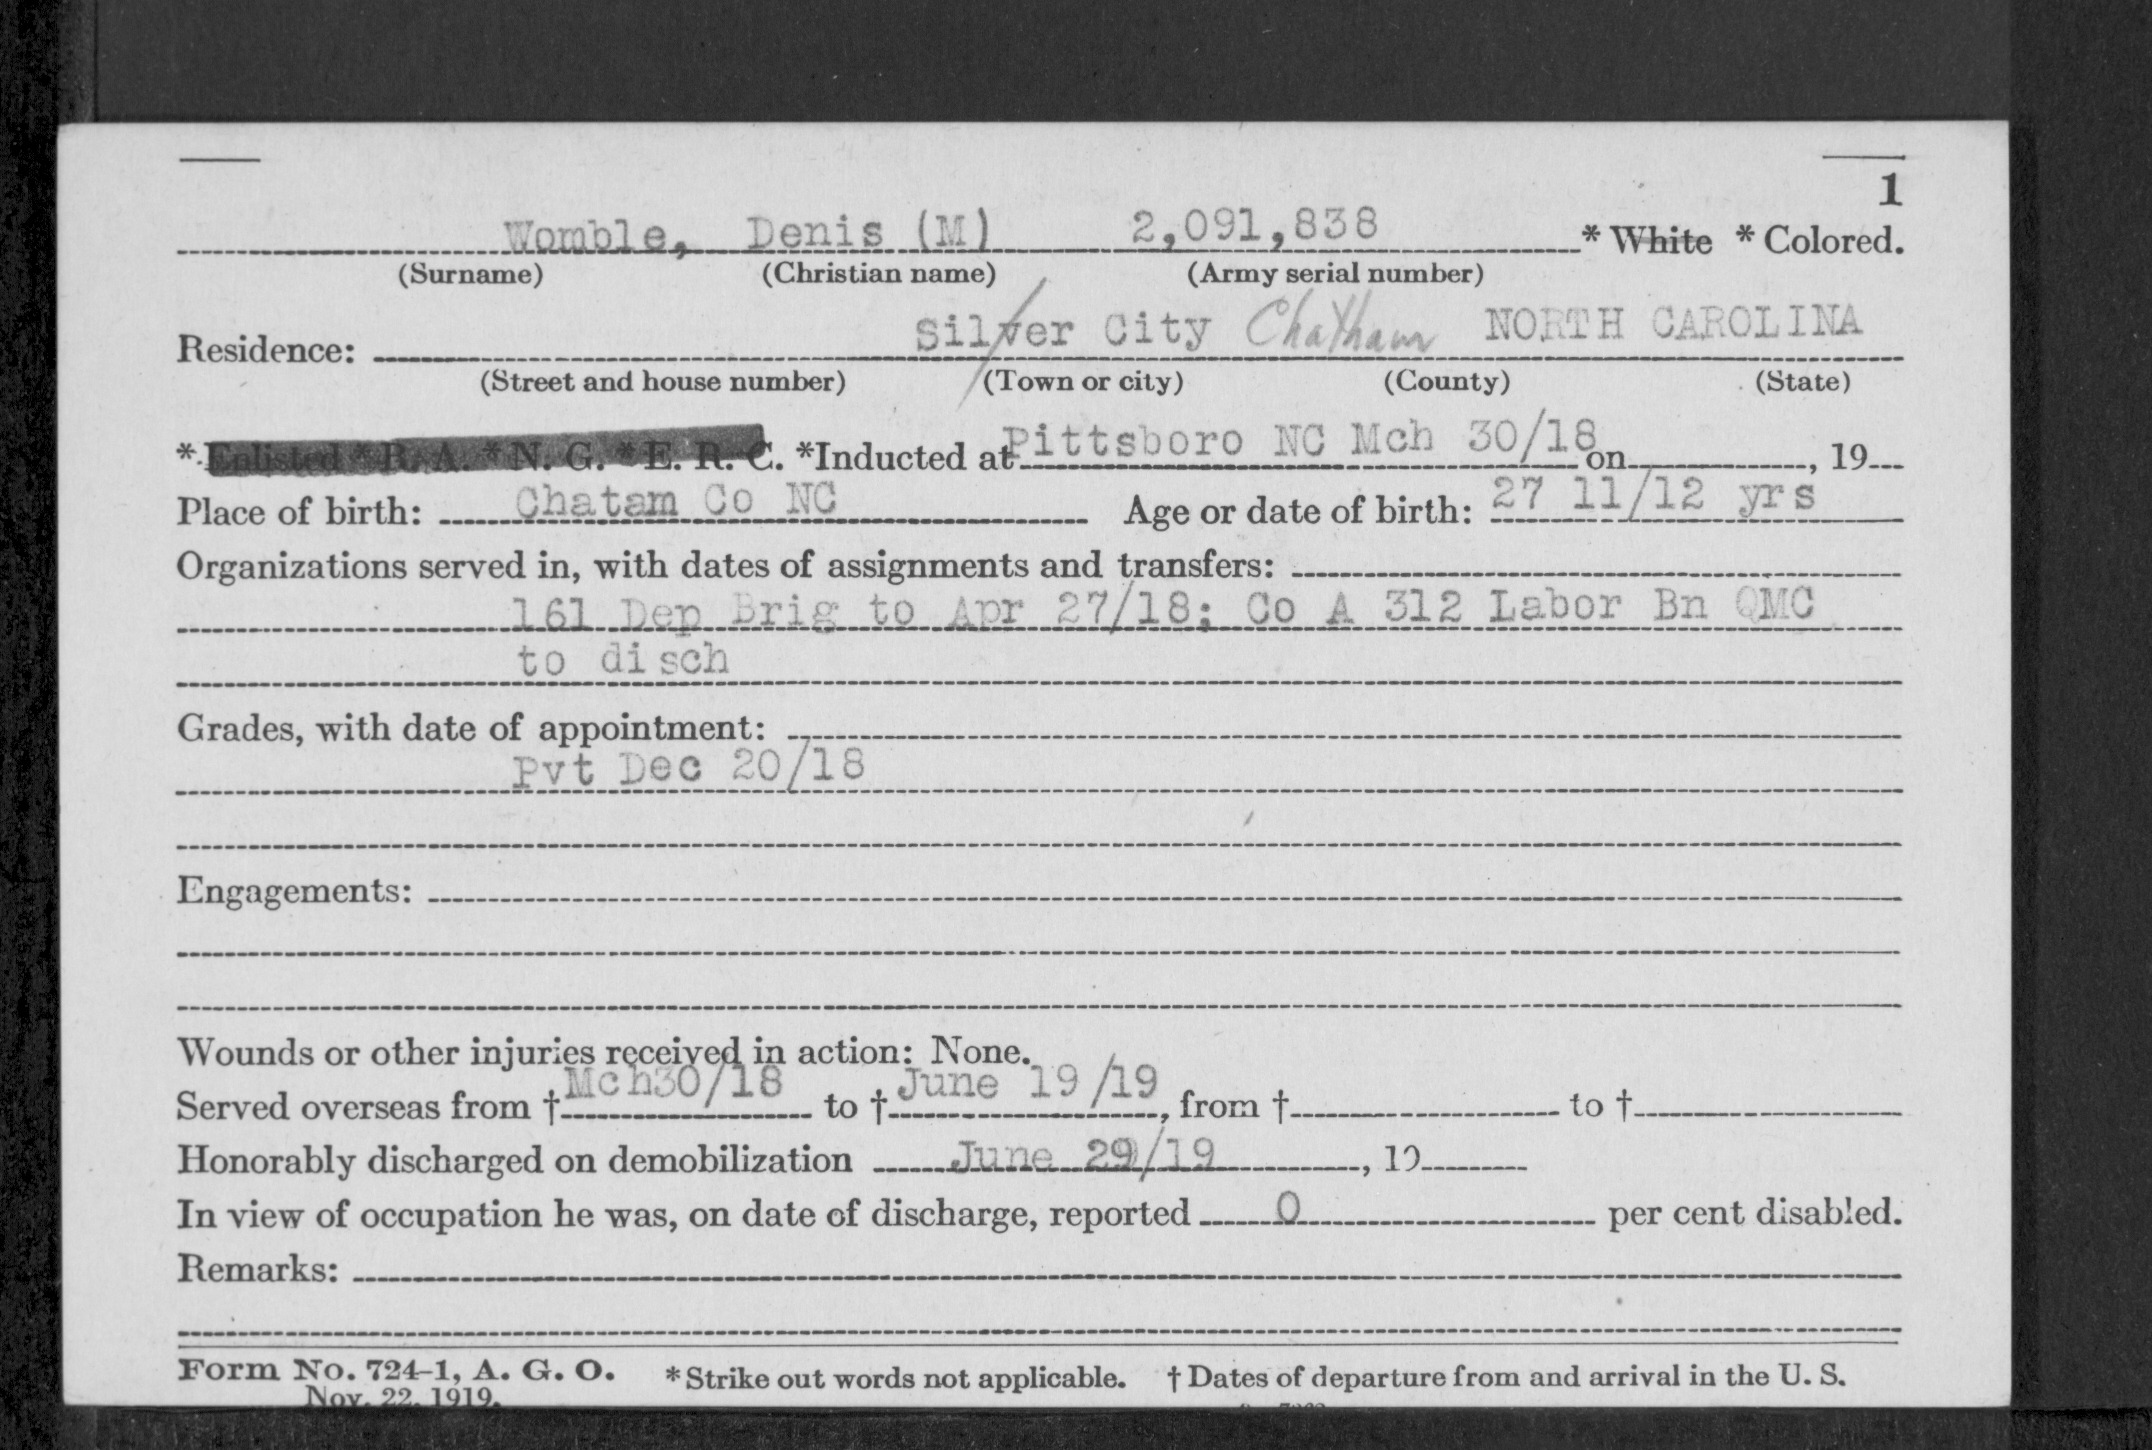 1
Womble, Denis (M) 2,091,838 * White * Colored.
(Surname) (Christian name) (Army serial number)
Residence: Silver City Chatham NORTH CAROLINA
(Street and house number) (Town or city) (County) (State)
* Enlisted * R. A. * N. G. * E. R. C. *Inducted at Pittsboro NC Mch 30/18 on , 19
Place of birth: Chatam Co NC Age or date of birth: 27 11/12 yrs
Organizations served in, with dates of assignments and transfers:
161 Dep Brig to Apr 27/18; Co A 312 Labor Bn QMC
to disch
Grades, with date of appointment:
Pvt Dec 20/18
Engagements:
Wounds or other injuries received in action: None.
Served overseas from † Mch30/18 to † June 19/19, from † to †
Honorably discharged on demobilization June 29/19, 19
In view of occupation he was, on date of discharge, reported 0 per cent disabled.
Remarks:
Form No. 724-1, A. G. O. * Strike out words not applicable. † Dates of departure from and arrival in the U. S.
Nov. 22, 1919.